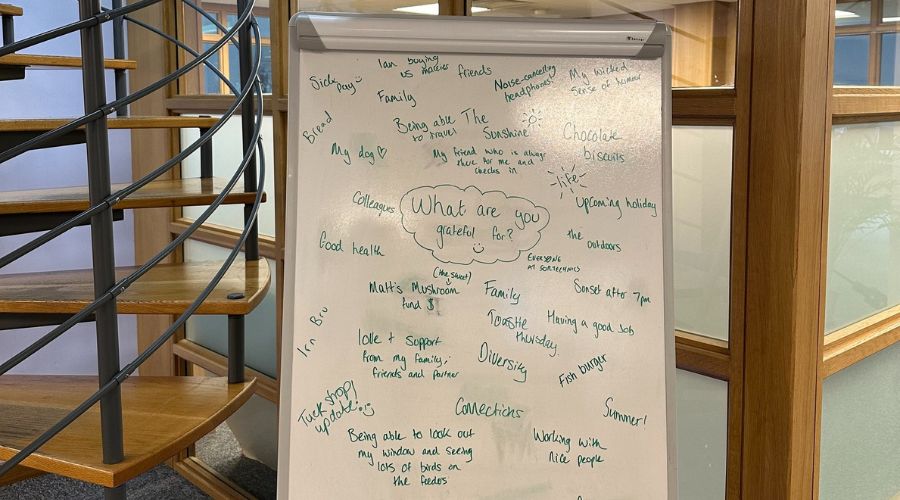 Sick Day
Ian buying
us
friends
Noise-cancelling
headphones!
My wicked
Sense of humour
Family
Bread
Being able
to travel
The
Sunshine
Chocolate
biscuits
My dog ♡
My friend who is always
there for me and
checks in
life
Upcoming holiday
Colleagues
What are you
grateful for?
the
outdoors
Good health
EVERYONE
AT
(the sweet)
Matt's Mushroom
fund $
Family
Sunset after 7pm
Toastie
thursday
Having a good job
Irn Bru
love + support
from my family,
friends and partner
Diversity
Fish burger
Tuck shop!
update
Connections
Summer!
Being able to look out
my window and seeing
lots of birds on
the feeders
Working with
nice people